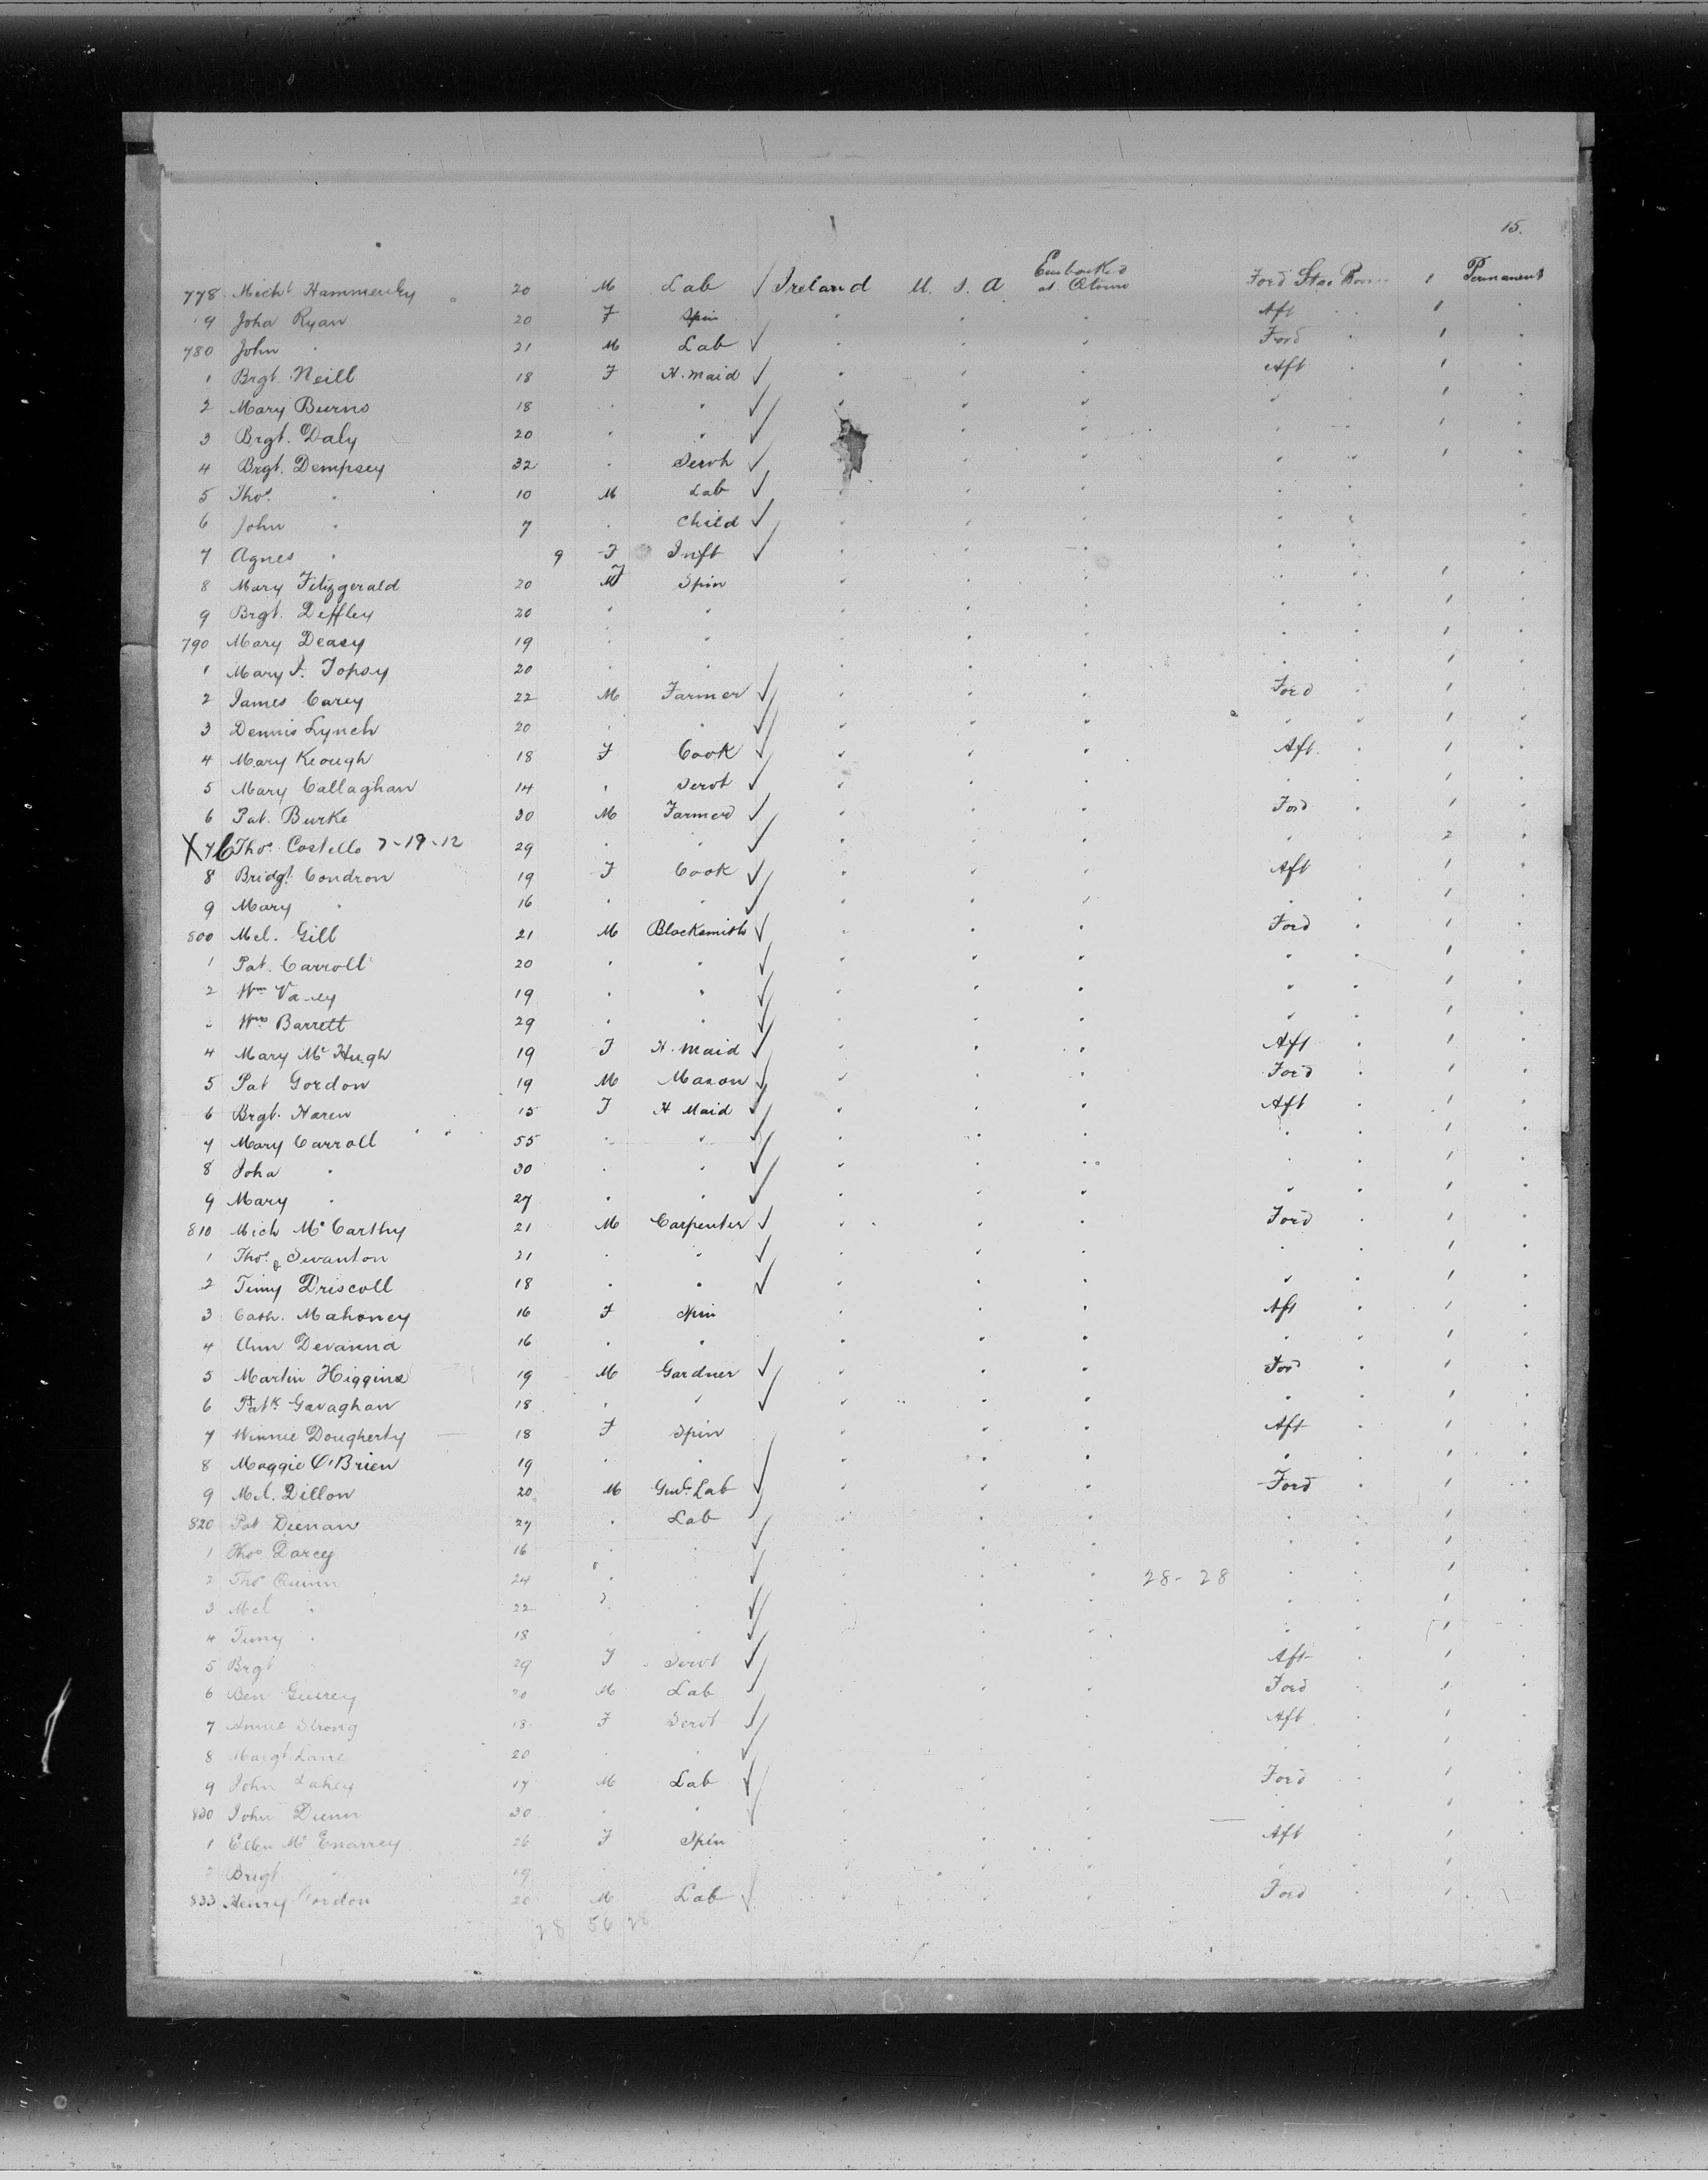 15.
778 Mich^l Hammersley 20 M Lab √ Ireland U. S. A Embarked at Qtown Ford Stee Room 1 Permanent
9 Joha Ryan 20 F Spin " " " Aft " 1 "
780 John " 21 M Lab √ " " " Ford " 1 "
1 Brgt. Neill 18 F H. maid √ " " " Aft " 1 "
2 Mary Burns 18 " " √ " " " " 1 "
3 Brgt. Daly 20 " " √ " " " " 1 "
4 Brgt. Dempsey 32 " Servt √ " " " " 1 "
5 Thos. " 10 M Lab √ " " " " " "
6 John " 7 " Child √ " " " " " "
7 Agnes " 9 F Inft √ " " " " " "
8 Mary Fitzgerald 20 F Spin " " " " " 1 "
9 Brgt. Deffley 20 " " " " " " " 1 "
790 Mary Deasy 19 " " " " " " " 1 "
1 Mary F. Topsy 20 " " " " " " " 1 "
2 James Carey 22 M Farmer √ " " " Ford " 1 "
3 Dennis Lynch 20 " " √ " " " " " 1 "
4 Mary Keough 18 F Cook √ " " " Aft " 1 "
5 Mary Callaghan 14 " Servt √ " " " " " 1 "
6 Pat. Burke 30 M Farmer √ " " " Ford " 1 "
X 7 Thos. Costello 7-19-12 29 " " √ " " " " " 2 "
8 Bridgt. Condron 19 F Cook √ " " " Aft " 1 "
9 Mary " 16 " " √ " " " " " 1 "
800 Mel. Gill 21 M Blacksmith √ " " " Ford " 1 "
1 Pat. Carroll 20 " " √ " " " " " 1 "
2 Wm 19 " " √ " " " " " 1 "
Wm Barrett 29 " " √ " " " " " 1 "
4 Mary Mc Hugh 19 F H. Maid √ " " " Aft " 1 "
5 Pat Gordon 19 M Mason √ " " " Ford " 1 "
6 Brgt. Haren 15 F H Maid √ " " " Aft " 1 "
7 Mary Carroll 55 " " √ " " " " " 1 "
8 Joha " 30 " " √ " " " " " 1 "
9 Mary " 27 " " √ " " " " " 1 "
810 Mich Mc Carthy 21 M Carpenter √ " " " Ford " 1 "
1 Thos. Swanton 21 " " √ " " " " " 1 "
2 Timy Driscoll 18 " " √ " " " " " 1 "
3 Cath. Mahoney 16 F Spin " " " Aft " 1 "
4 Ann Devanna 16 " " " " " " " 1 "
5 Martin Higgins 19 M Gardner √ " " " Ford " 1 "
6 Patk Gavaghan 18 " " √ " " " " " 1 "
7 Winnie Dougherty 18 F Spin " " " Aft " 1 "
8 Maggie O'Brien 19 " " " " " " " 1 "
9 Ml. Dillon 20 M Genl. Lab √ " " " Ford " 1 "
820 Pat Deenan 27 " Lab √ " " " " " 1 "
1 Thos Darcy 16 " " √ " " " " " 1 "
2 Thos Quinn 24 " " √ " " " 28-28 " " 1 "
3 Mel " 22 " " √ " " " " " 1 "
4 Timy " 18 " " √ " " " " " 1 "
5 Brgt " 29 F Servt √ " " " Aft " 1 "
6 Ben 20 M Lab √ " " " Ford " 1 "
7 Annie Strong 18 F Servt √ " " " Aft " 1 "
8 Margt. Lane 20 " " √ " " " " " 1 "
9 John Lahey 17 M Lab √ " " " Ford " 1 "
830 John Dunn 30 " " √ " " " " " 1 "
1 Ellen Mc Enarrey 26 F Spin " " " Aft " 1 "
2 Brigt. " 19 " " " " " " " 1 "
833 Henry Gordon 20 M Lab √ " " " Ford " 1 "
28 56 28